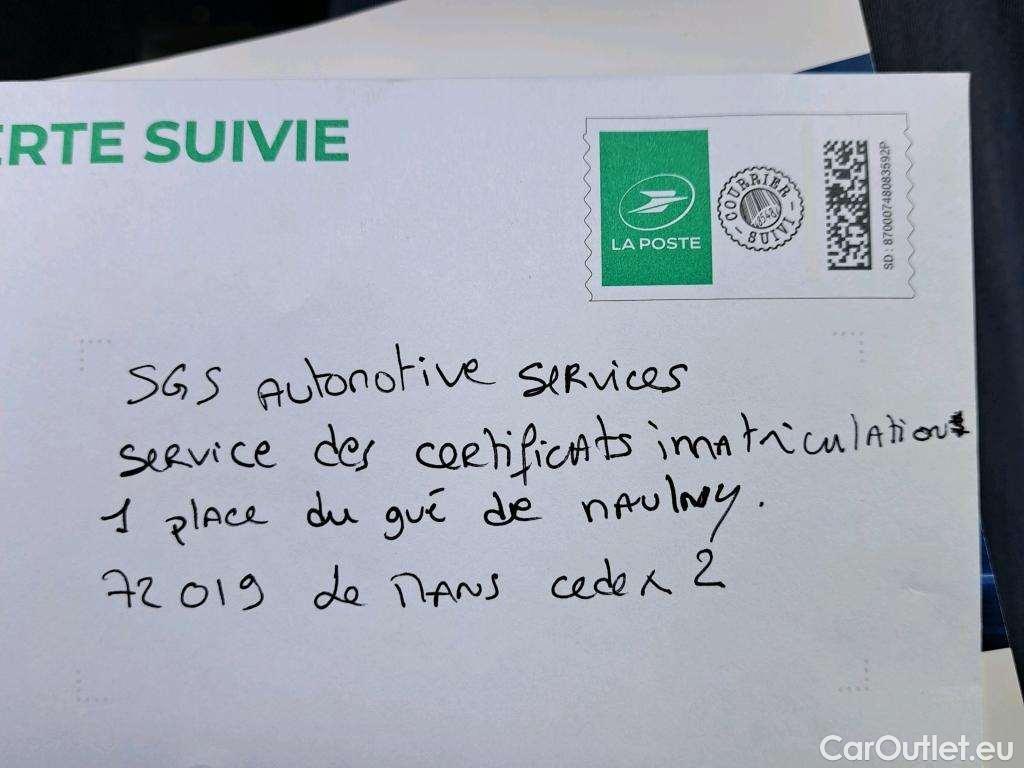 ERTE SUIVIE
LA POSTE
COURRIER SUIVI
SD : 87000748083592P
SGS Automotive Services
Service des certificats imatriculation
1 place du gué de Maulny.
72019 Le Mans cedex 2
CarOutlet.eu